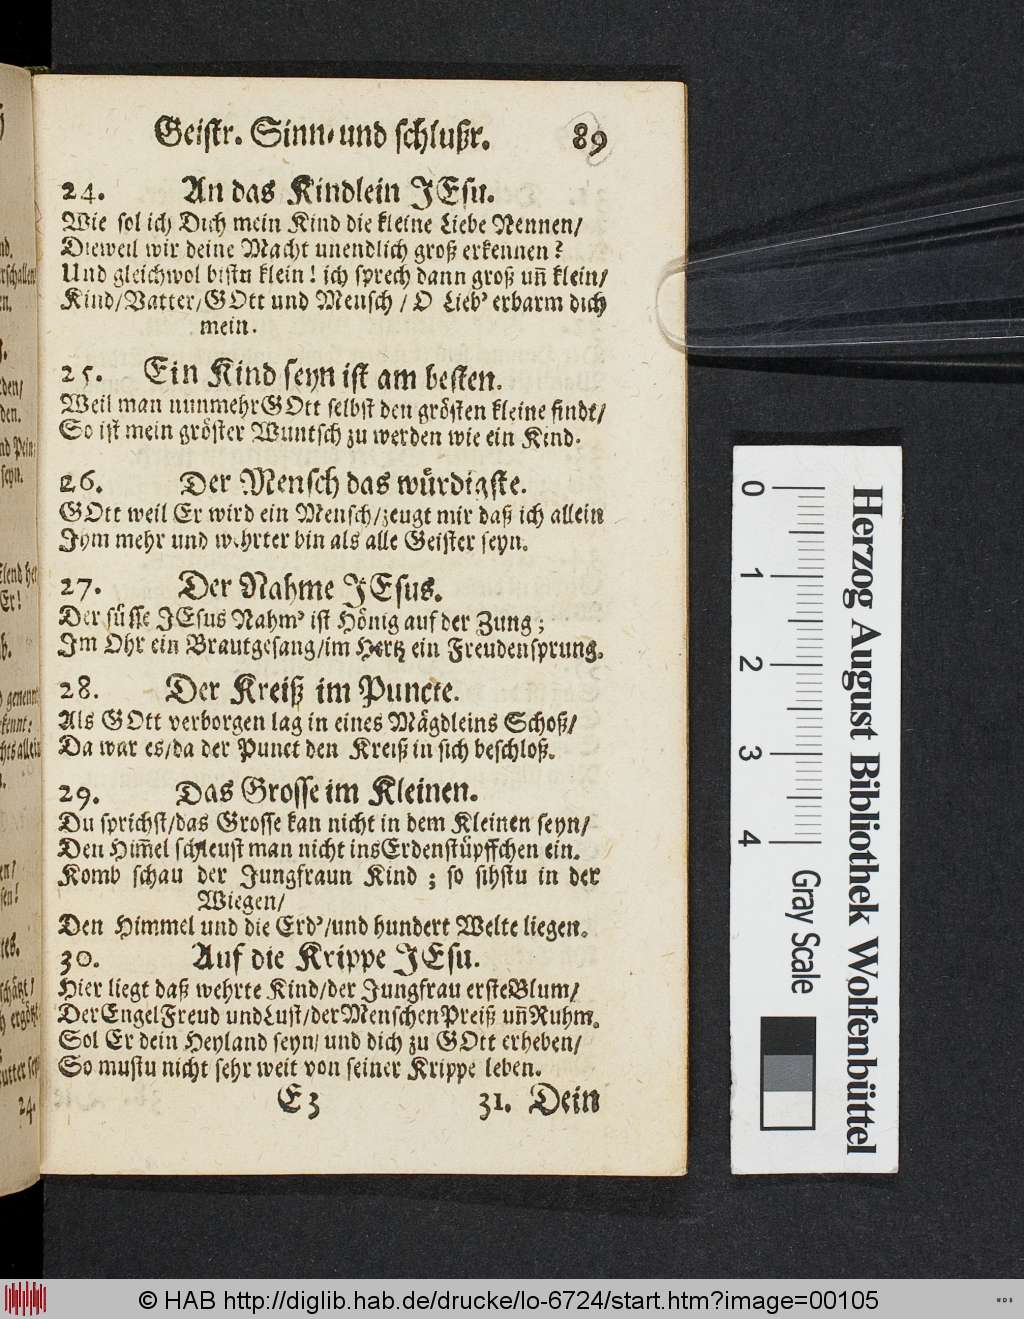 Geistr. Sinn- und schlußr. 89
24. An das Kindlein JEsu.
Wie sol ich Dich mein Kind die kleine Liebe Nennen/
Dieweil wir deine Macht unendlich groß erkennen?
Und gleichwol bistu klein! ich sprech dann groß uñ klein/
Kind/Vatter/GOtt und Mensch / O Lieb' erbarm dich
mein.
25. Ein Kind seyn ist am besten.
Weil man nunmehr GOtt selbst den grösten kleine findt/
So ist mein gröster Wuntsch zu werden wie ein Kind.
26. Der Mensch das würdigste.
GOtt weil Er wird ein Mensch/zeugt mir daß ich allein
Jhm mehr und wehrter bin als alle Geister seyn.
27. Der Nahme JEsus.
Der süsse JEsus Nahm' ist Hönig auf der Zung;
Im Ohr ein Brautgesang/im Hertz ein Freudensprung.
28. Der Kreiß im Puncte.
Als GOtt verborgen lag in eines Mägdleins Schoß/
Da war es/da der Punct den Kreiß in sich beschloß.
29. Das Grosse im Kleinen.
Du sprichst/das Grosse kan nicht in dem Kleinen seyn/
Den Him̃el schleust man nicht ins Erdenstüpffchen ein.
Komb schau der Jungfraun Kind; so sihstu in der
Wiegen/
Den Himmel und die Erd'/und hundert Welte liegen.
30. Auf die Krippe JEsu.
Hier liegt daß wehrte Kind/der Jungfrau erste Blum/
Der Engel Freud und Lust/der Menschen Preiß uñ Ruhm.
Sol Er dein Heyland seyn/ und dich zu GOtt erheben/
So mustu nicht sehr weit von seiner Krippe leben.
E 3 31. Dein
0 1 2 3 4
Gray Scale
Herzog August Bibliothek Wolfenbüttel
© HAB http://diglib.hab.de/drucke/lo-6724/start.htm?image=00105